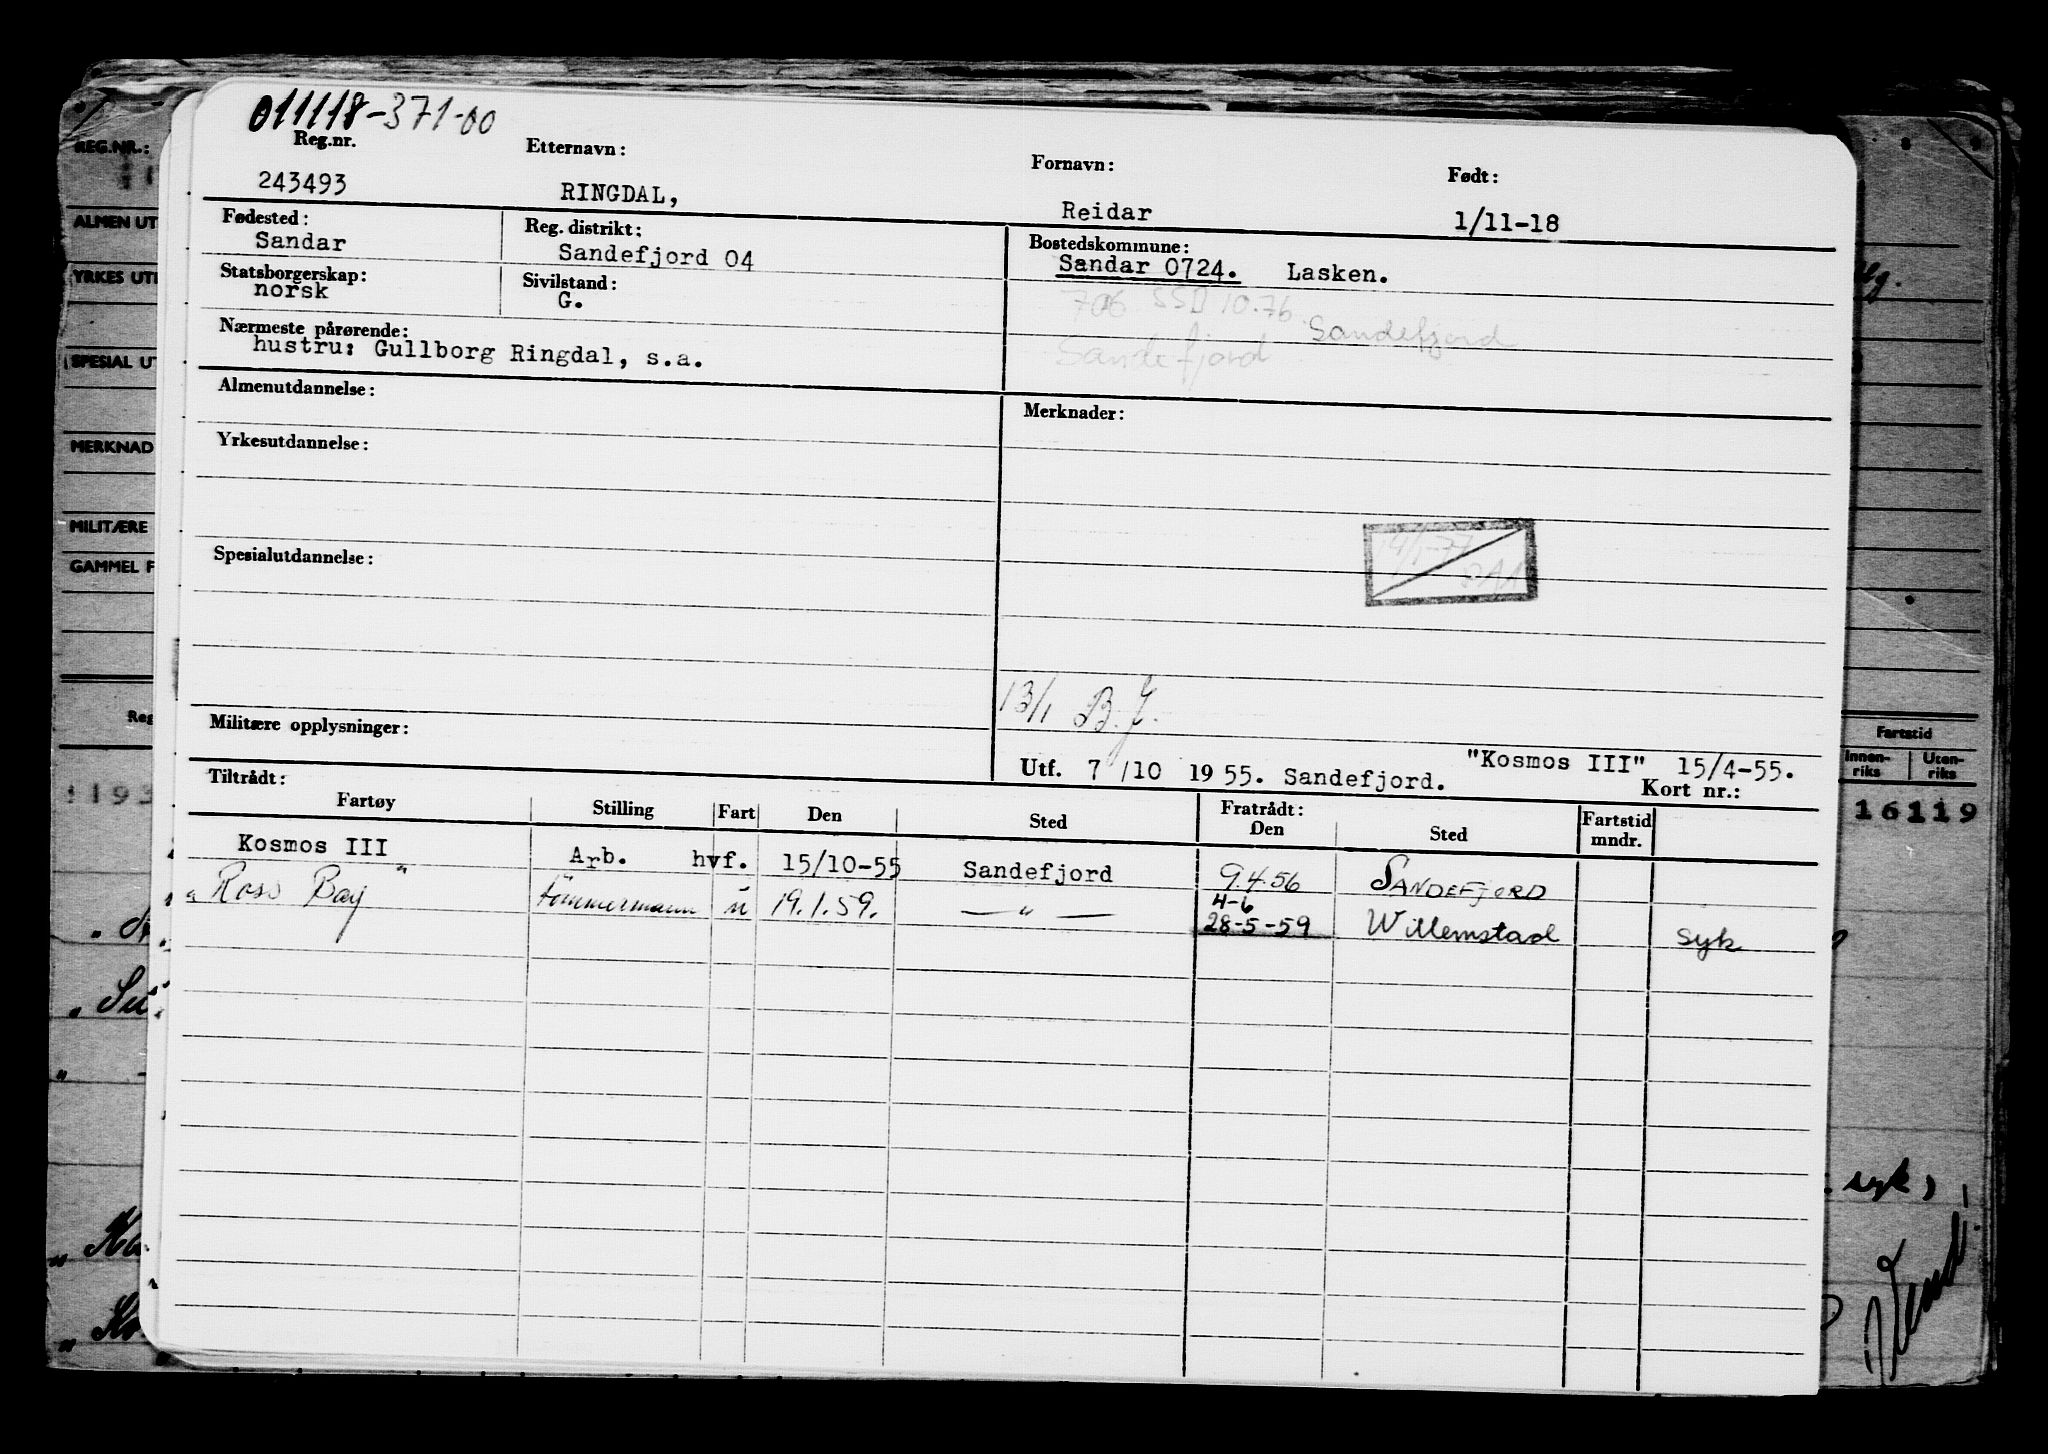 011118-371-00
Reg.nr. Etternavn: Fornavn: Født:
243493 RINGDAL, Reidar 1/11-18
Fødested: Reg. distrikt: Bostedskommune:
Sandar Sandefjord 04 Sandar 0724. Lasken.
Statsborgerskap: Sivilstand:
norsk G.
706 SSD 10.76 Sandefjord
Nærmeste pårørende: Sandefjord
hustru: Gullborg Ringdal, s.a.
Almenutdannelse: Merknader:
Yrkesutdannelse:
14/1-77
Spesialutdannelse:
13/1 B.J.
Militære opplysninger:
Utf. 7 /10 1955. Sandefjord. "Kosmos III" 15/4-55.
Tiltrådt: Kort nr.:
Fartøy Stilling Fart Den Sted Fratrådt: Den Sted Fartstid mndr.
Kosmos III Arb. hvf. 15/10-55 Sandefjord 9.4.56 SANDEFJORD
"Ross Bay" tömmermann u 19.1.59. — " — 4-6
28-5-59 Willemstad syk
REG.NR.:
ALMEN UT
YRKES UT
SPESIAL UT
MERKNAD
MILITÆRE
GAMMEL F
Reg
Fartstid
Innen-riks Uten-riks
16119
syk,